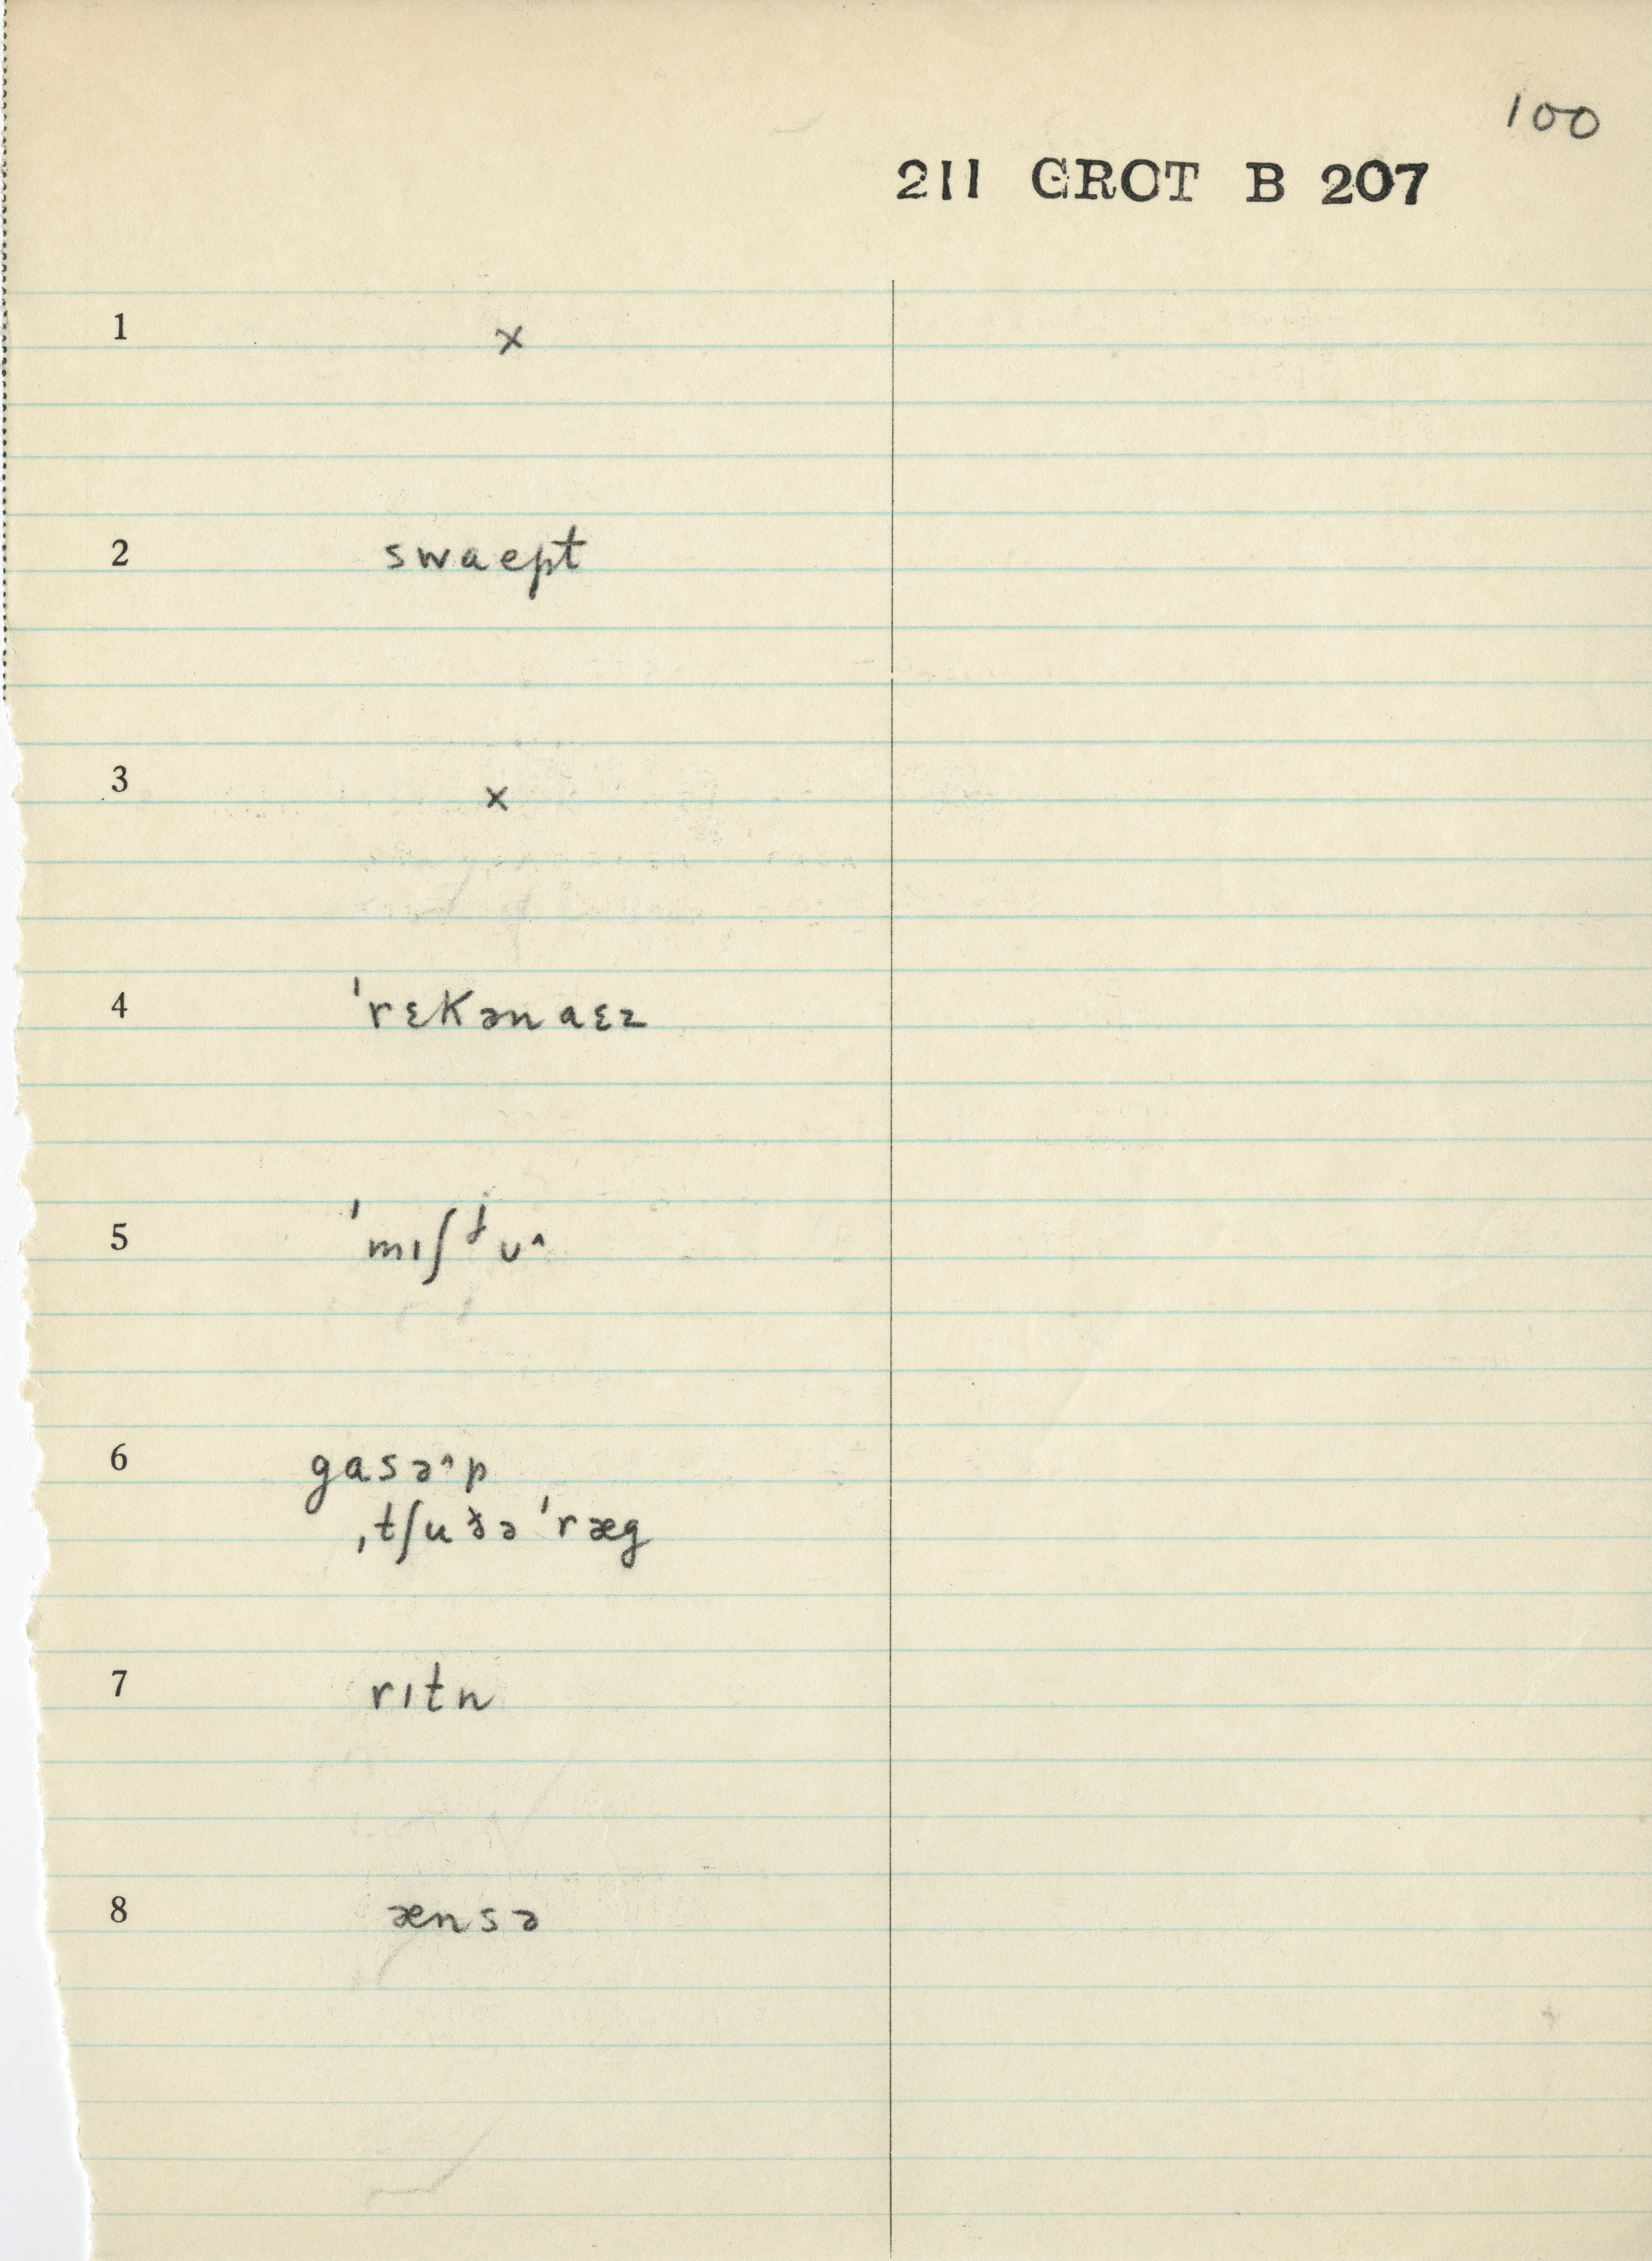 100
211 GROT B 207
1 x
2 swaept
3 x
4 ˈrɛkənaɛz
5 ˈmɪʃʲʊ^
6 gasə^p
ˌtʃuðəˈræg
7 rɪtn
8 ænsə